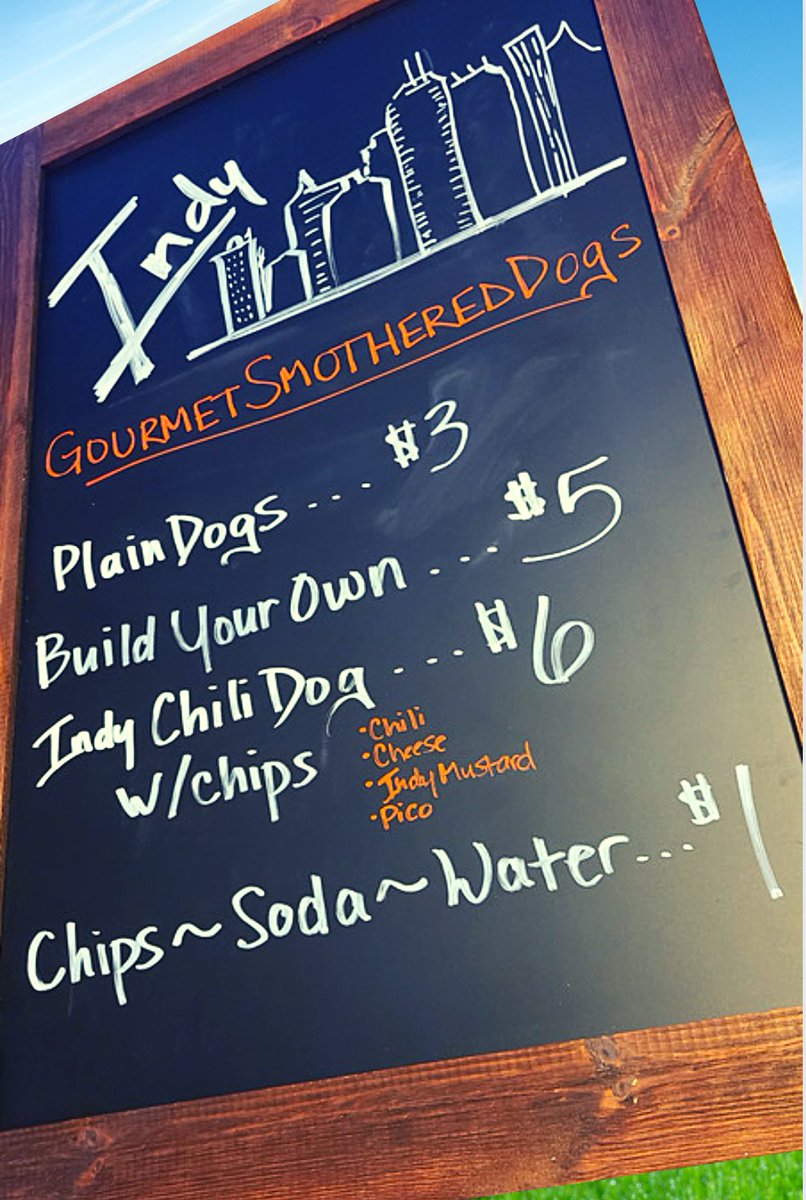 Indy
GOURMET SMOTHERED DOgs
Plain Dogs ... $3
Build Your Own ... $5
Indy Chili Dog ... $6
w/chips
• Chili
• Cheese
• Indy Mustard
• Pico
Chips ~ Soda ~ Water ... $1